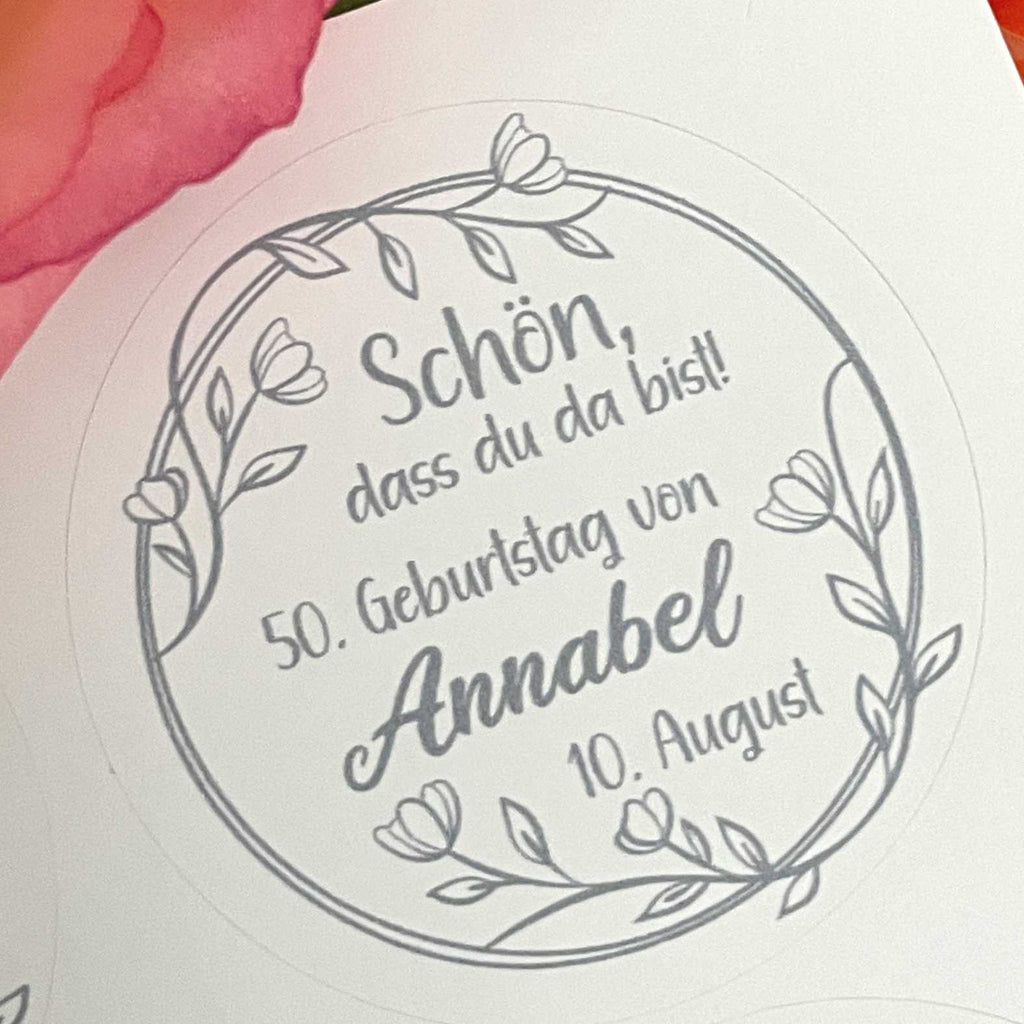 Schön,
dass du da bist!
50. Geburtstag von
Annabel
10. August